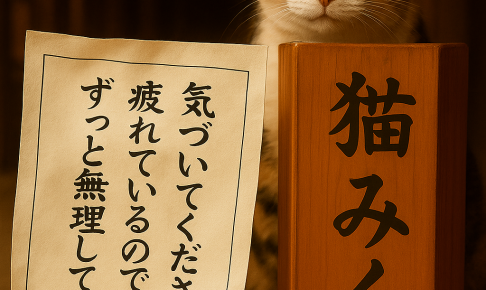 気づいてくださ
疲れているので
ずっと無理して
猫みく